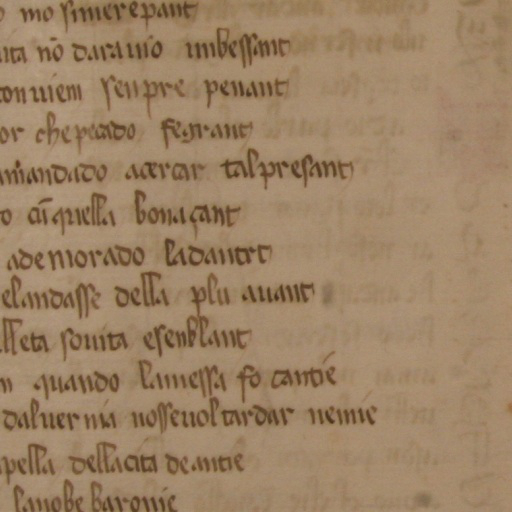 mo si merepant
nõ darauio imbessant
conuiem senpre penant
or che pecado fegrant
mãndado acercar tal presant
o cũ quella bona çant
ademorado ladantrt
elandasse della plu auant
lleta souita e senblant
n quando la messa fo cantie
daluer nia nosse uol tardar nemie
pella della cita de antie
la nobe baronie